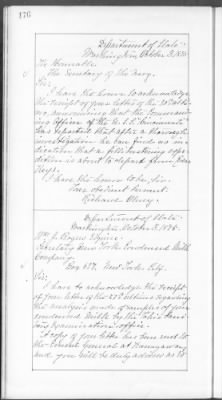 176
Department of State.
Washington, October 3, 1895.
The Honorable
The Secretary of the Navy.
Sir:
I have the honor to acknowledge
the receipt of your letter of the
announcing that the Command-
ing Officer of the U.S.S. Cincinnati
has reported that after a thorough
investigation he can find no in-
dication that a filibustering expe-
dition is about to depart from
Keys.
I have the honor to be, Sir,
Your obedient servant,
Richard Olney.
Department of State.
Washington, October 3, 1895.
Wm. J. Rogers, Esquire,
Secretary New York Condensed Milk
Company,
Box New York City.
Sir:
I have to acknowledge the receipt
of your letter of the 27th ultimo regarding
the analysis made of samples of your
condensed milk by the
Examination office.
A copy of your letter has been sent to
the Consul General at
and you will be duly advised as to